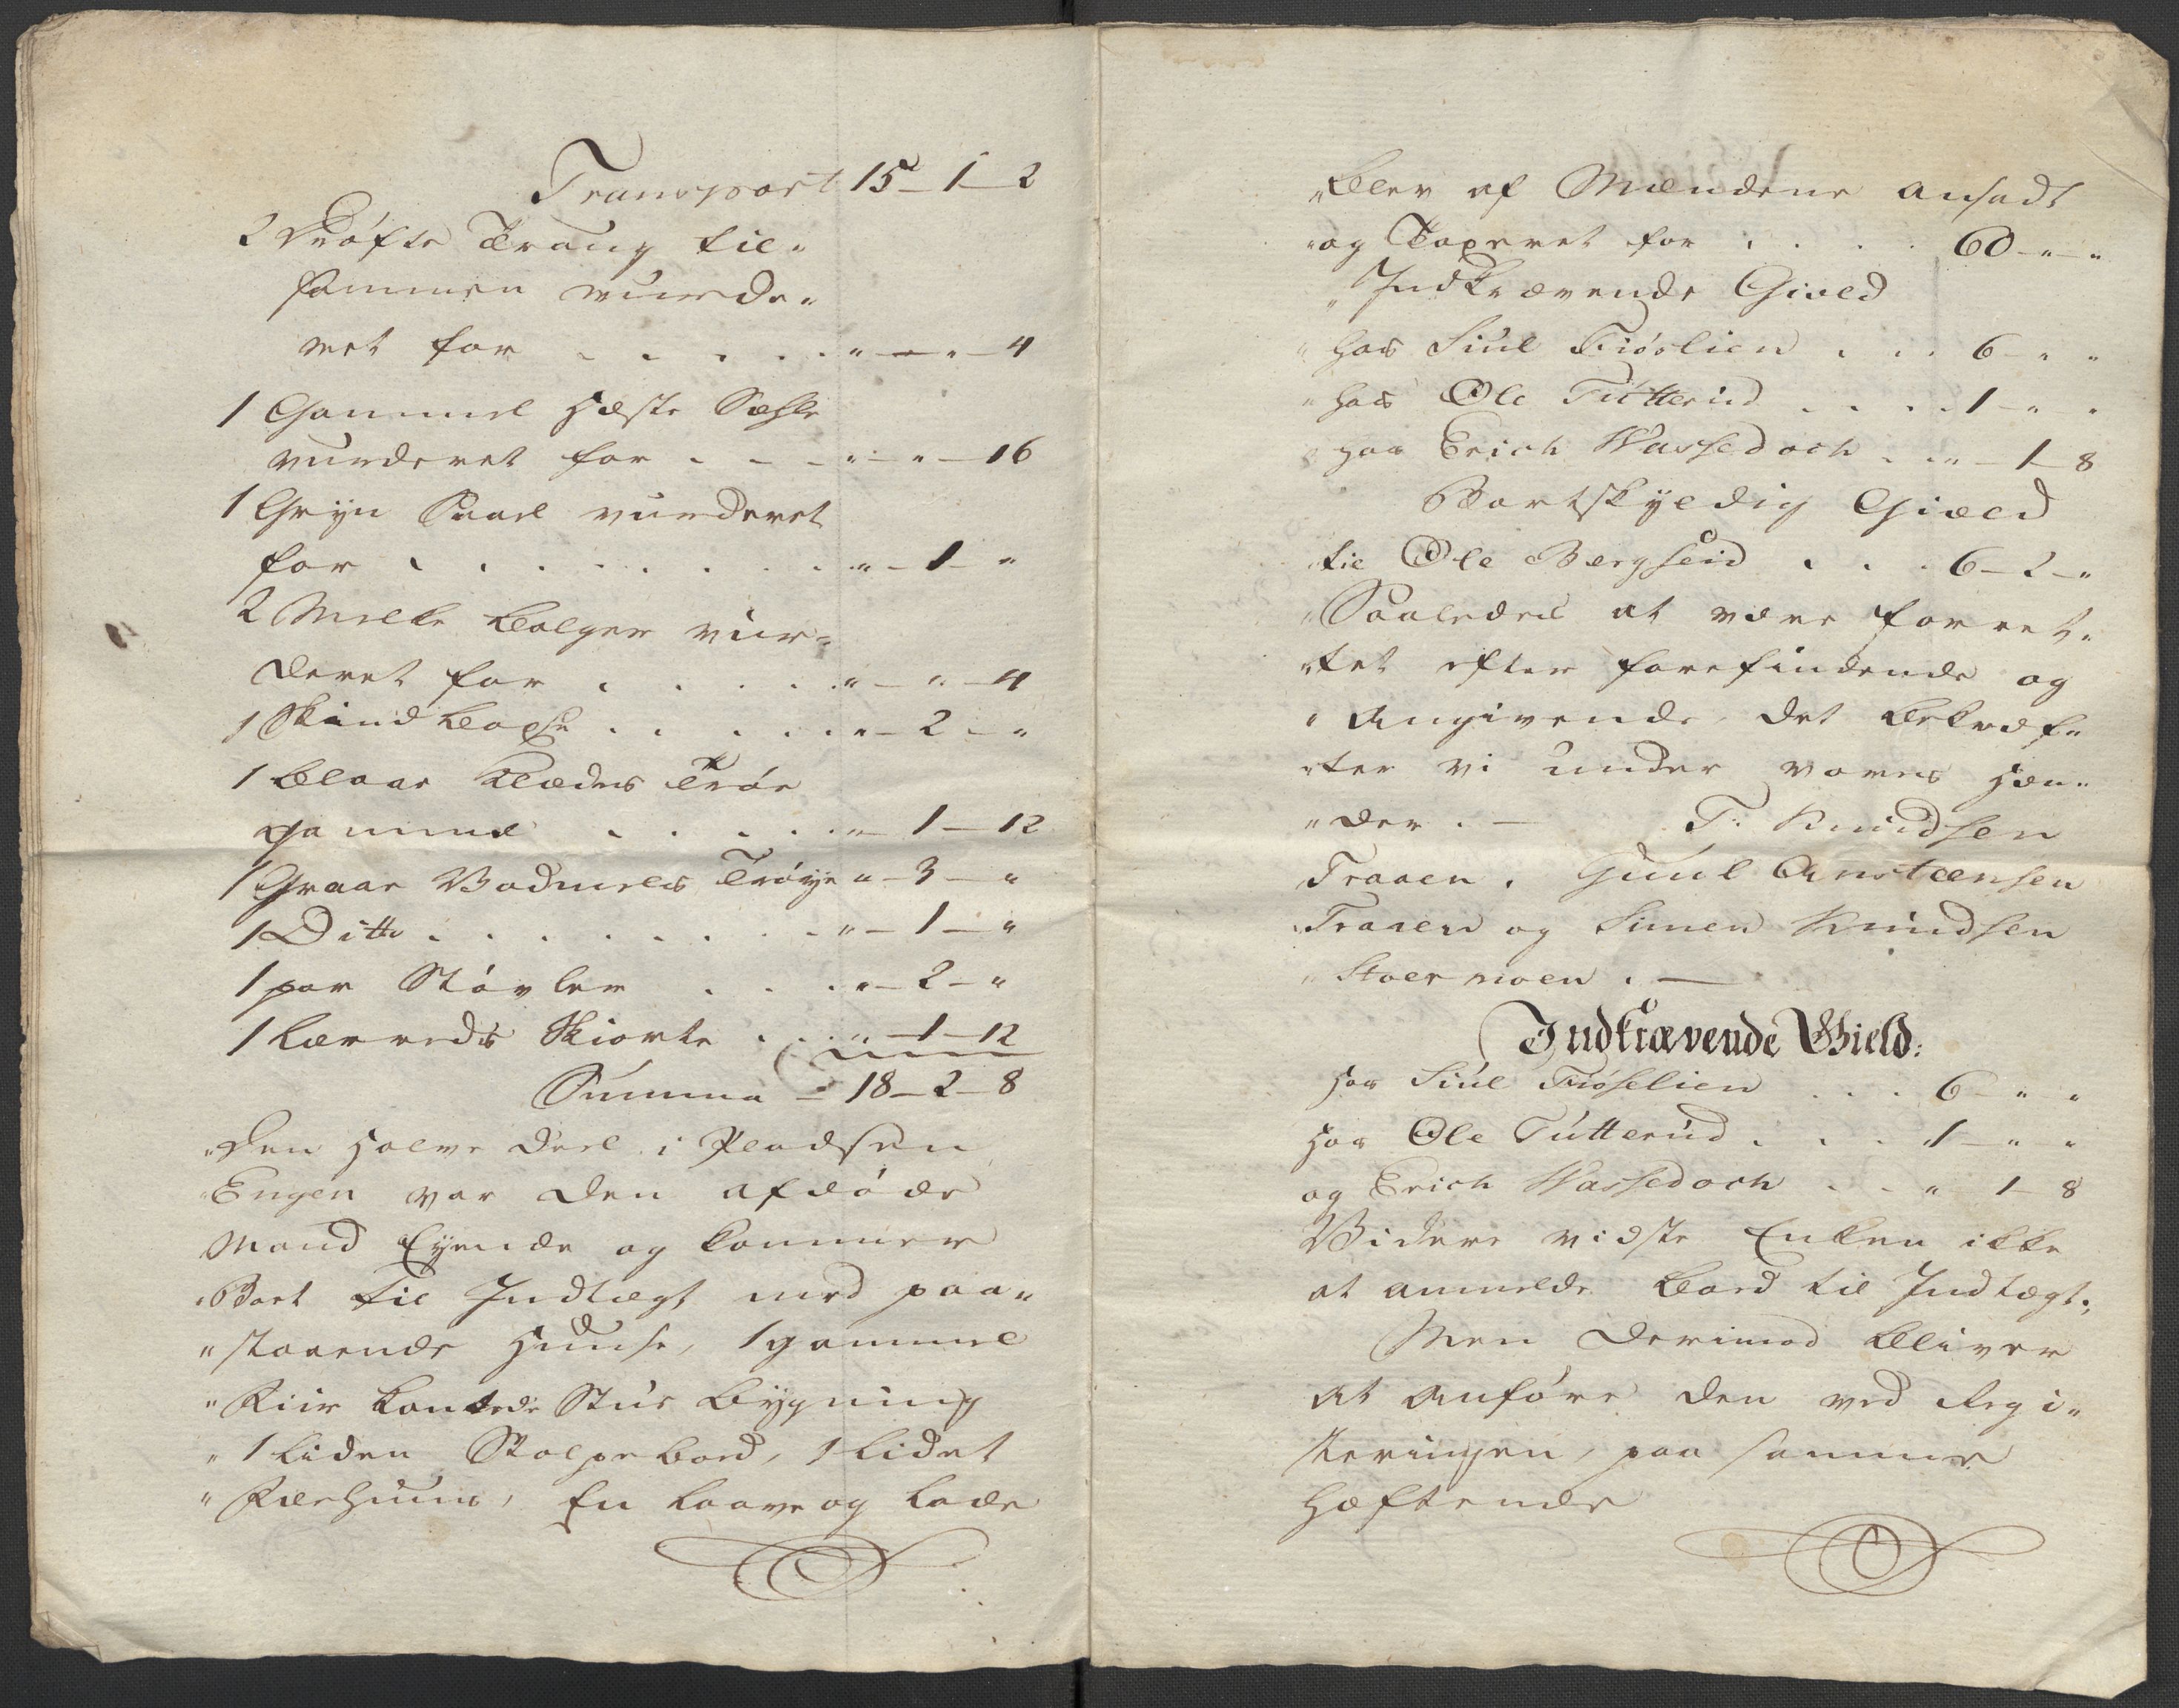 Transport 15 – 1 – 2
2 Drøfte Traug til„
sammen vurde„
ret for . . . . . „ – „ – 4
1 Gammel Hæste Sæhle
vurderet for . . . „ – „ – 16
1 Gryn Saael vurderet
for . . . . . . . „ – 1 – „
2 Melke Bolger vur„
deret for . . . . „ – „ – 4
1 Skind Boxse . . . . . „ – 2 – „
1 blaae Klædes Trøie
gammel . . . . . „ – 1 – 12
1 Graae Vadmels Trøye „ – 3 – „
1 Ditto . . . . . . . . „ – 1 – „
1 par Støvler . . . „ – 2 – „
1 Lærreds Skiorte . . „ – 1 – 12
Summa – 18 – 2 – 8
„Den halve Deel i Pladsen
„Engen var den afdøde
Mand Eyende og kommer
„Bort til Indtægt med paa„
„staaende Huuse, 1 gammel
„Fiir kantede Stue bygning
„1 liden Stolpeboed, 1 lidet
„Fæehuus, En Laave og Lade
„blev af Mændene ansadt
„og Taxeret for . . . . 60 – „ – „
„Indkrævende Giæld
„hos Siul Fiøslien . . . 6 – „ „
„hos Ole Tutterud . . . . 1 – „ „
„hos Erich Wassedoch . . „ – 1 – 8
Bortskyldig Giæld
„til Ole Bergseid . . . 6 – 2 – „
„Saaledes at være forret„
„tet efter forefindende og
„Angivende, det bekræf„
„ter vi under vores Hæn„
„der . — T: Knudsen
Traaen. Guul Anstensen
„Traaen og Simen Knudsen
„Stoermoen . —
Indkrævende Gield:
Hos Siul Fiøselien . . . 6 – „ „
Hos Ole Tutterud . . . 1 – „ „
og Erich Wassedoch . . „ 1 – 8
Videre vidste Enken ikke
at anmelde Boed til Indtægt.
Men derimod bliver
at anføre den ved Regi„
steringen, paa samme
hæftende